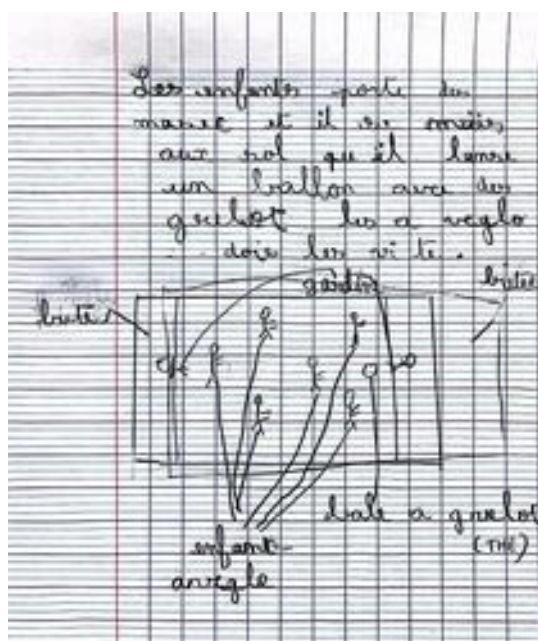 Les enfantes porte des
masec et il se
aux sol qu il lense
un ballon avec des
grelot les a veglo
dois les vi te.
gardin
buté
buter
bale a grelot
(THE)
enfant-
avegle